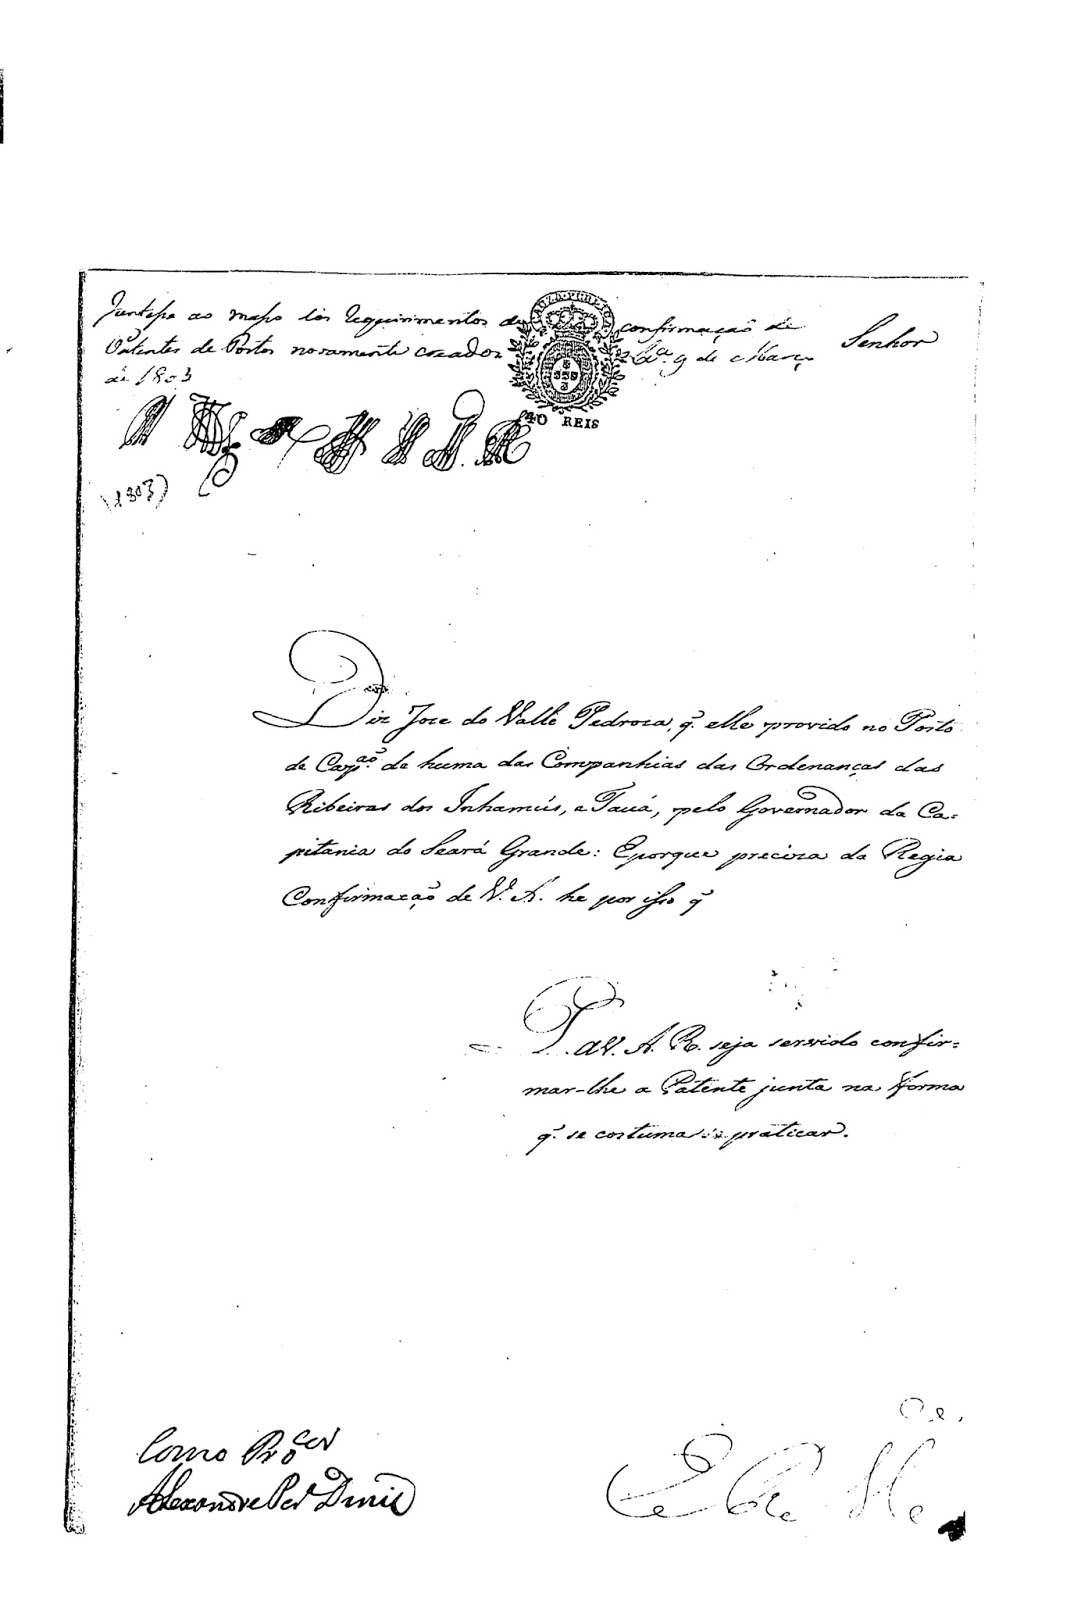 Juntese ao mapo los requirimentos de confirmação de
Patentes de Postos novamente creados Lxa. 9 de Março
de 1803
Senhor
40 REIS
(1803)
Diz Joze do Valle Pedroza, q̃ elle provido no Posto
de Capᵃᵒ. de huma das Companhias das Ordenanças das
Ribeiras dos Inhamús, e Tauá, pelo Governador da Ca:
pitania do Seará Grande: Eporque preciza da Regia
Confirmação de V. A. he por isso q̃
P. a V. A. R. seja servido confir:
mar-lhe a Patente junta na forma
q̃ se costuma praticar.
E R Mce
Como Proᶜᵒʳ
Alexandre Per.ᵃ Diniz